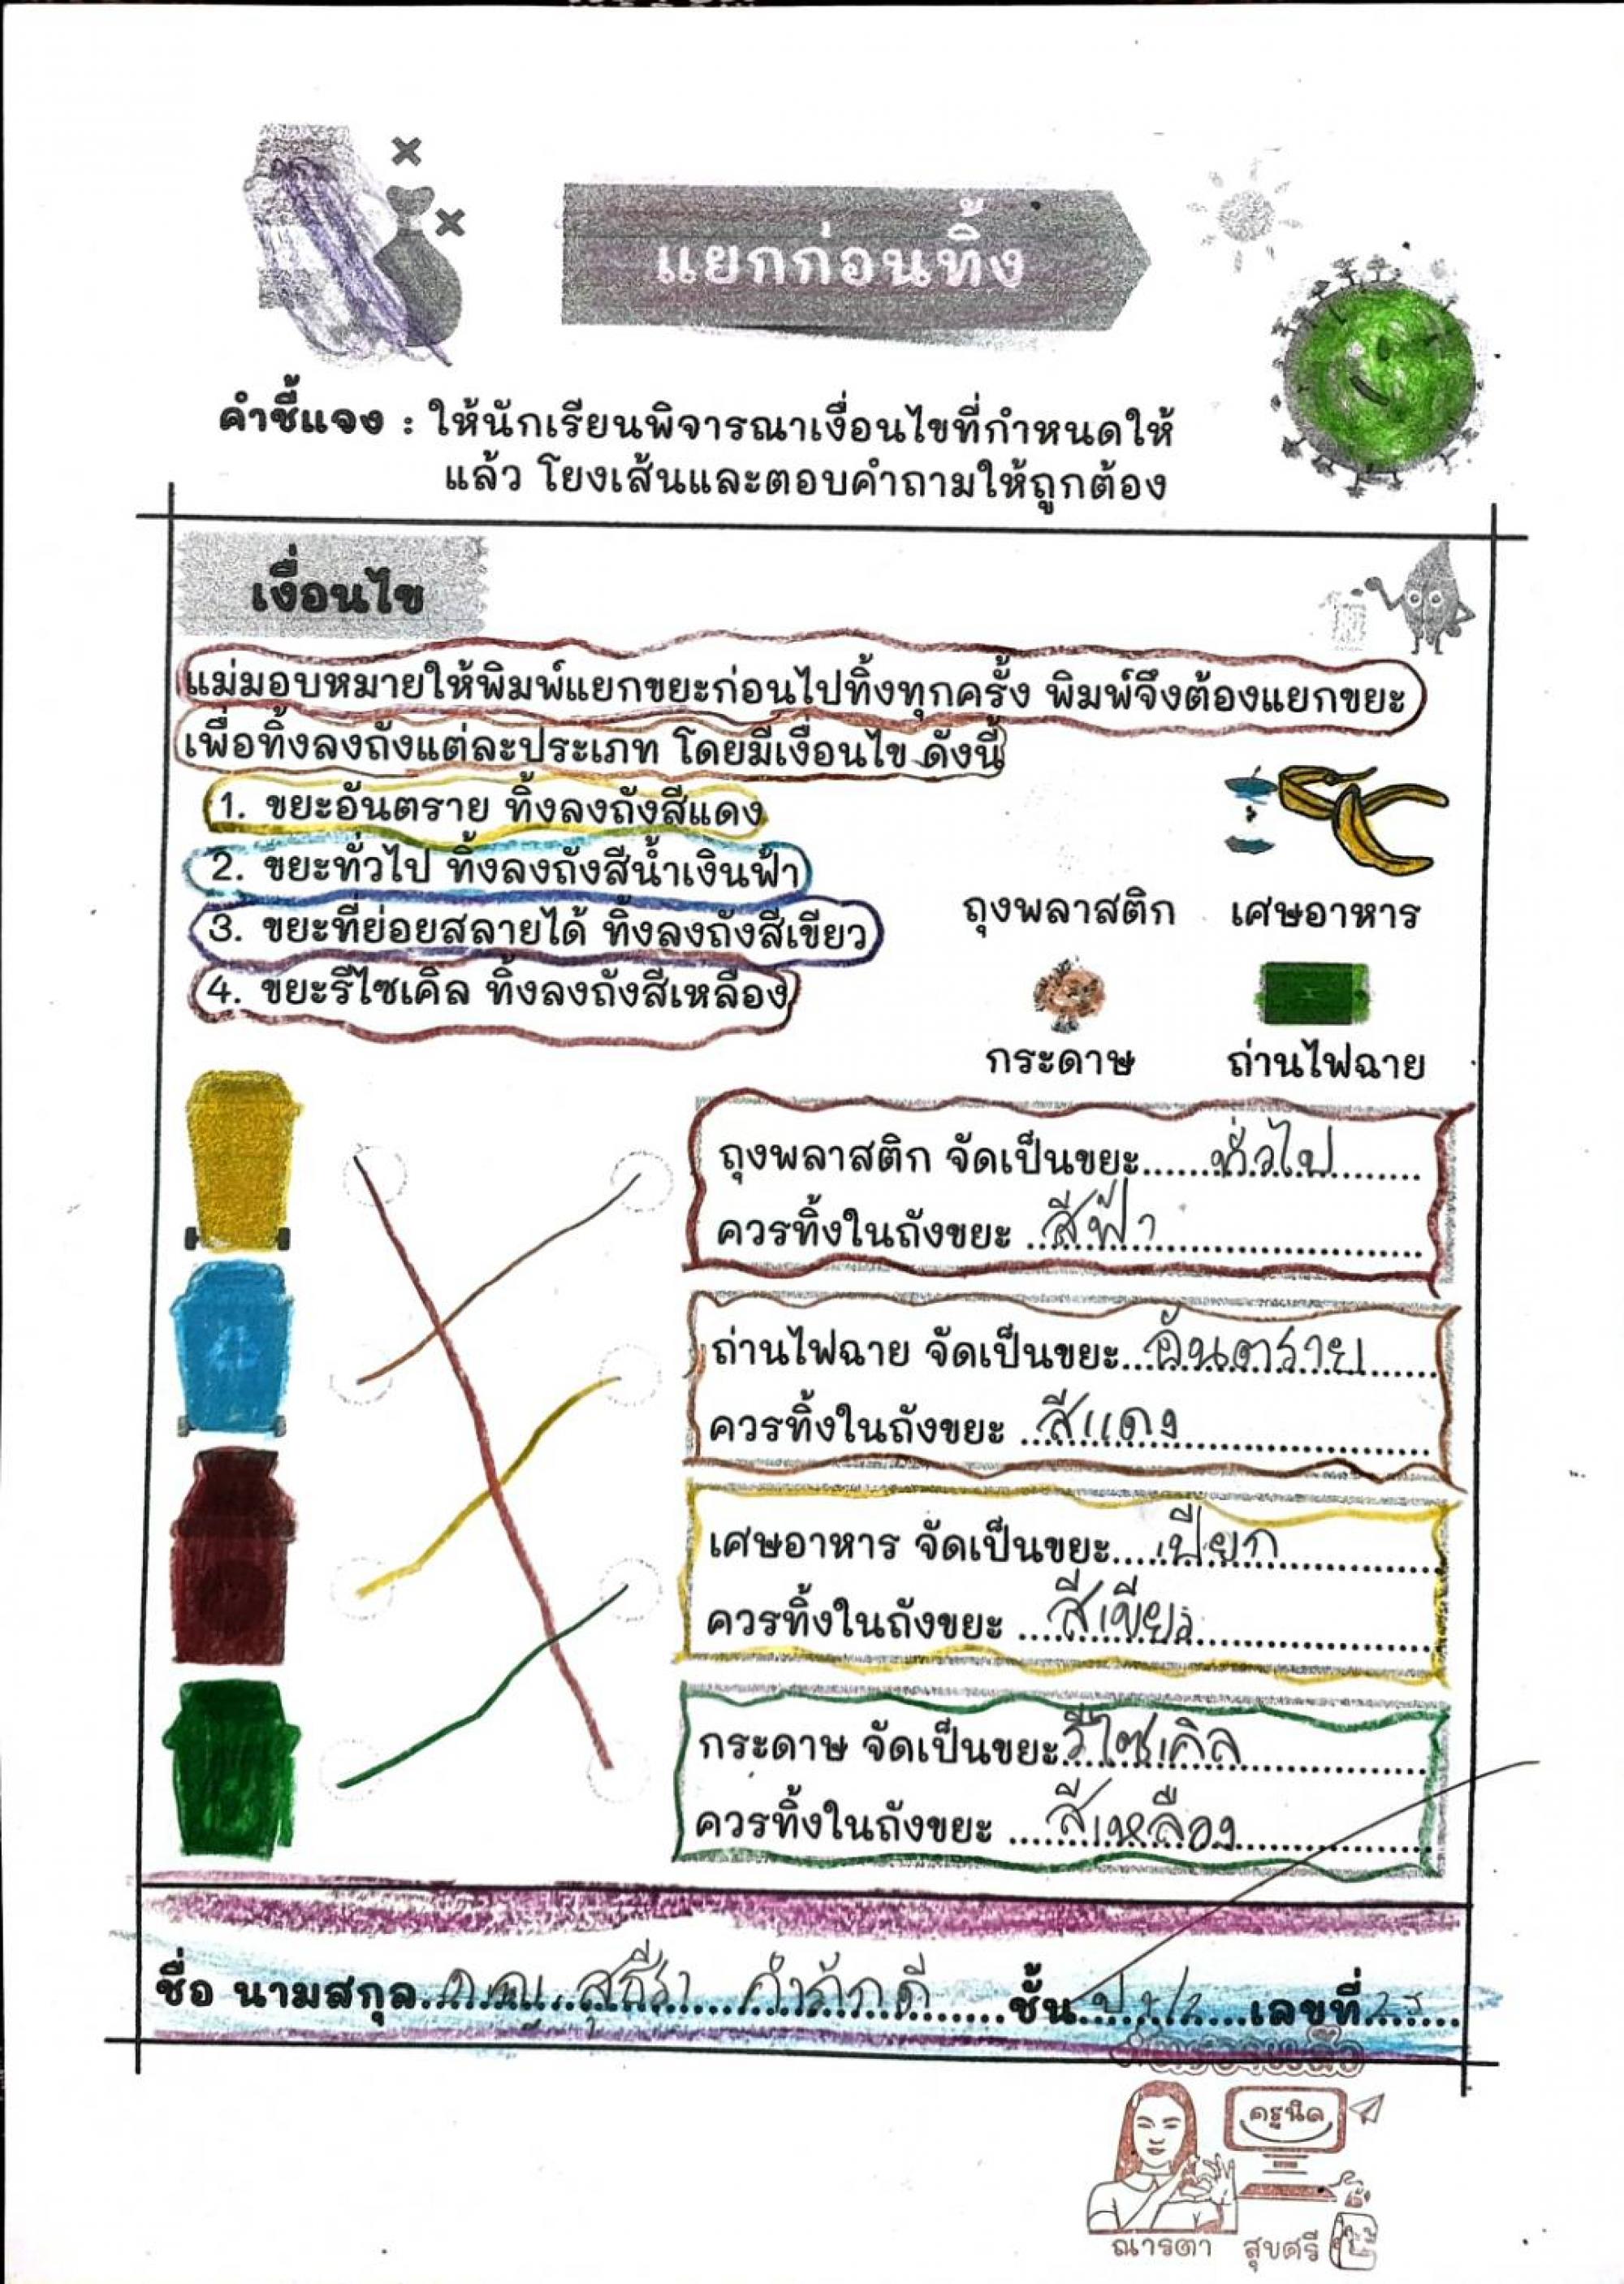 แยกก่อนทิ้ง
คำชี้แจง : ให้นักเรียนพิจารณาเงื่อนไขที่กำหนดให้
แล้ว โยงเส้นและตอบคำถามให้ถูกต้อง
เงื่อนไข
แม่มอบหมายให้พิมพ์แยกขยะก่อนไปทิ้งทุกครั้ง พิมพ์จึงต้องแยกขยะ
เพื่อทิ้งลงถังแต่ละประเภท โดยมีเงื่อนไข ดังนี้
1. ขยะอันตราย ทิ้งลงถังสีแดง
2. ขยะทั่วไป ทิ้งลงถังสีน้ำเงินฟ้า
3. ขยะที่ย่อยสลายได้ ทิ้งลงถังสีเขียว
4. ขยะรีไซเคิล ทิ้งลงถังสีเหลือง
ถุงพลาสติก เศษอาหาร
กระดาษ ถ่านไฟฉาย
ถุงพลาสติก จัดเป็นขยะ......ทั่วไป.......
ควรทิ้งในถังขยะ ...สีฟ้า..................
ถ่านไฟฉาย จัดเป็นขยะ...อันตราย......
ควรทิ้งในถังขยะ ...สีแดง..................
เศษอาหาร จัดเป็นขยะ.....เปียก............
ควรทิ้งในถังขยะ ....สีเขียว..................
กระดาษ จัดเป็นขยะ.รีไซเคิล..............
ควรทิ้งในถังขยะ ....สีเหลือง................
ชื่อ นามสกุล...ด.ญ. สุธีรา คำภักดี......ชั้น ป 1/2 ...เลขที่ 25
ครูนิล
ณารตา สุขศรี